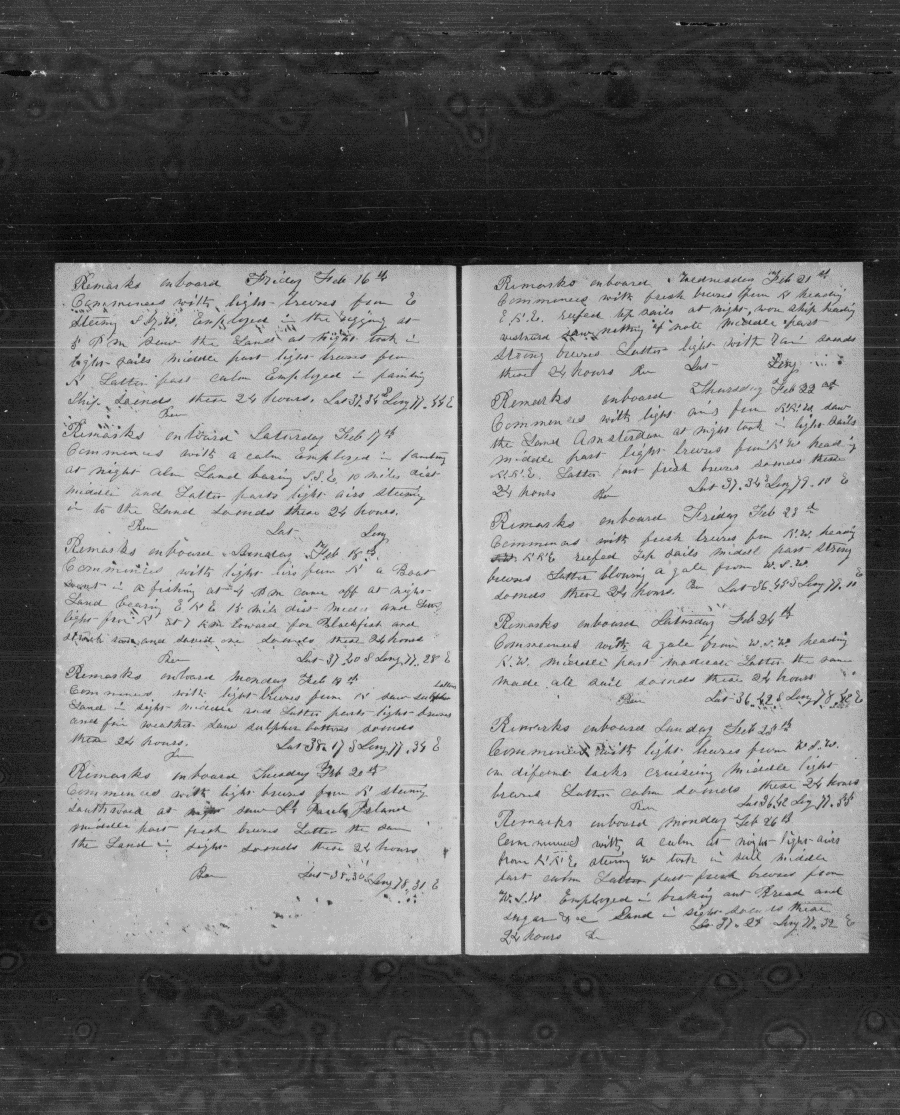 Remarks onboard Friday Feb 16th
Commences with light breeses from E
Stering Employed in the riging at
P m Saw the Land at night took in
light sails middle part light breeses from
N Latter part calm Employed in painting
Ship So ends these 24 hours. Lat 37.34 Long 77.44 E
Remarks onboard Saturday Feb 17th
Commences with a calm Employed in painting
at night Land baring S.S.E. 10 miles dist
middle and Latter parts light airs stering
in to the Land So ends these 24 hours.
Lat Long
Remarks onboard Sunday Feb 18th
Commences with light airs from N a Boat
went in a fishing at 4 P m came off at night
Land bearing E N E 15 mile dist and
light from N at 7 Lowered for Blackfish and
struck and saved one So ends these 24 hours
Lat 37.20 S Long 77.28 E
Remarks onboard Monday Feb 19th
Commences with light breeses from N saw sulphur
Land in sight middle and Latter parts light breeses
and fair weather saw sulpher bottoms So ends
these 24 hours. Lat 38.17 S Long 77.34 E
Remarks onboard Tuesday Feb 20th
Commences with light breeses from N stering
Southward at night saw St Pauls Island
middle part fresh breeses Latter the same
the Land in sight So ends these 24 hours
Lat 38.30 S Long 78.31 E
Remarks onboard Wednesday Feb 21st
Commences with fresh breeses from N heading
E.N.E. reefed top sails at night wore ship heading
westward saw nothing of note middle part
strong breeses Latter light with rain So ends
these 24 hours Lat Long
Remarks onboard Thursday Feb 22
Commences with light airs from N.N.W. saw
the Land Amsterdam at night took in light sails
middle part light breeses from N W heading
N.N.E. Latter part fresh breeses So ends these
24 hours Lat 37.34 S Long 79.10 E
Remarks onboard Friday Feb 23
Commences with fresh breeses from N.W. heading
N N E reefed top sails middel part strong
breeses Latter blowing a gale from W.S.W.
So ends these 24 hours. Lat 36.45 S Long 77.10 E
Remarks onboard Saturday Feb 24th
Commences with a gale from W.S.W. heading
N.W. middle part moderate Latter the same
made all sail So ends these 24 hours
Lat 36.49 S Long 78. E
Remarks onboard Sunday Feb 25th
Commences with light breeses from W.S.W.
on diferent tacks cruising middle light
breeses Latter calm So ends these 24 hours
Lat 36.42 Long 77.35
Remarks onboard Monday Feb 26th
Commences with a calm at night light airs
from N.N.E stering W took in sail middle
part calm Latter part fresh breeses from
W.S.W. Employed in braking out Bread and
sugar &c Land in sight So ends these
24 hours 37.28 Long 77.32 E